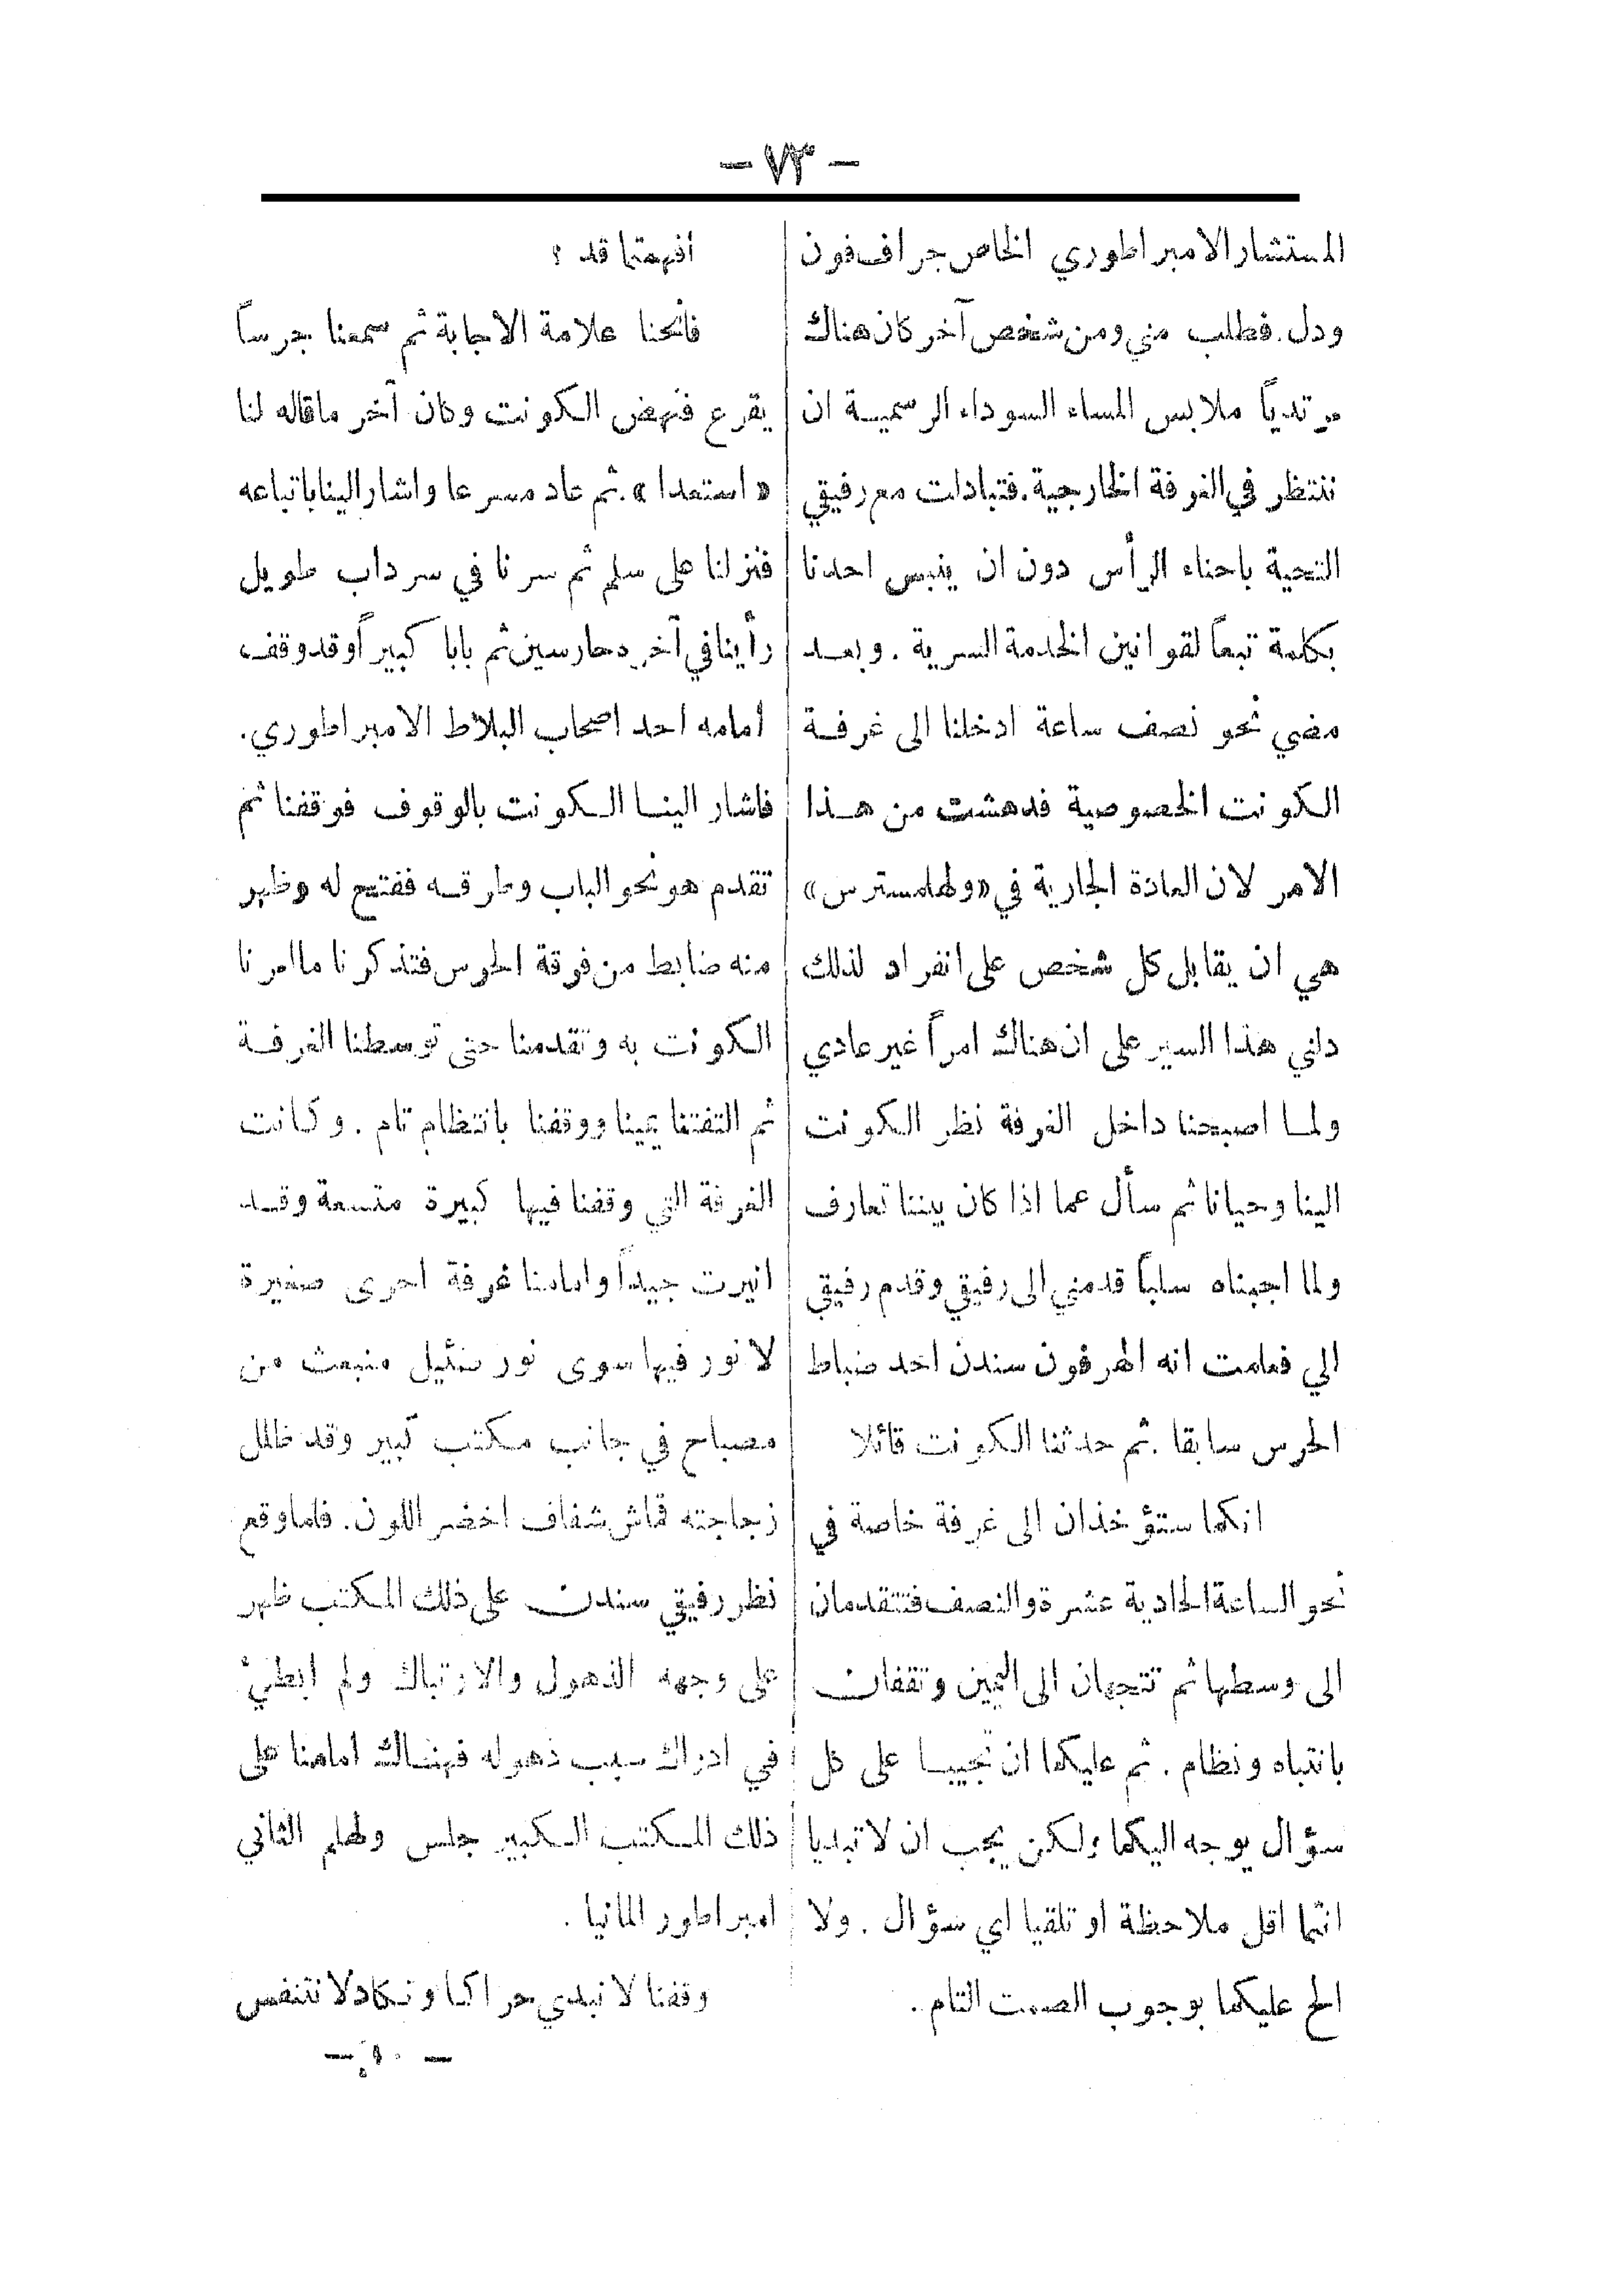 — ٧٣ —
المستشار الامبراطوري الخاص جراف فون
ودل. فطلب مني ومن شخص آخر كان هناك
مرتدياً ملابس المساء السوداء الرسمية ان
ننتظر في الغرفة الخارجية. فتبادلت مع رفيقي
التحية باحناء الرأس دون ان ينبس احدنا
بكلمة تبعاً لقوانين الخدمة السرية . وبعد
مضي نحو نصف ساعة ادخلنا الى غرفة
الكونت الخصوصية فدهشت من هذا
الامر لان العادة الجارية في «ولهلمسترس»
هي ان يقابل كل شخص على انفراد لذلك
دلني هذا السير على ان هناك امراً غير عادي
ولما اصبحنا داخل الغرفة نظر الكونت
الينا وحيانا ثم سأل عما اذا كان بيننا تعارف
ولما اجبناه سلباً قدمني الى رفيقي وقدم رفيقي
الي فعلمت انه الهر فون سندن احد ضباط
الحرس سابقا . ثم حدثنا الكونت قائلا
انكما ستؤخذان الى غرفة خاصة في
نحو الساعة الحادية عشرة والنصف فتتقدمان
الى وسطها ثم تتجهان الى اليمين وتقفان
بانتباه ونظام . ثم عليكما ان تجيبا على كل
سؤال يوجه اليكما ولكن يجب ان لا تبديا
انتما اقل ملاحظة او تلقيا اي سؤال . ولا
الح عليكما بوجوب الصمت التام .
افهمتما قد ؟
فانحنا علامة الاجابة ثم سمعنا جرساً
يقرع فنهض الكونت وكان آخر ماقاله لنا
« استعدا » . ثم عاد مسرعا واشار الينا باتباعه
فنزلنا على سلم ثم سرنا في سرداب طويل
رأينا في آخره حارسين ثم بابا كبيراً وقد وقف
أمامه احد اصحاب البلاط الامبراطوري .
فاشار الينا الكونت بالوقوف فوقفنا ثم
تقدم هو نحو الباب وطرقه ففتح له وظهر
منه ضابط من فرقة الحرس فتذكرنا ما امرنا
الكونت به وتقدمنا حتى توسطنا الغرفة
ثم التفتنا يمينا ووقفنا بانتظام تام . وكانت
الغرفة التي وقفنا فيها كبيرة متسعة وقد
انيرت جيداً وامامنا غرفة احرى صغيرة
لا نور فيها سوى نور ضئيل منبعث من
مصباح في جانب مكتب كبير وقد ظلل
زجاجته قماش شفاف اخضر اللون . فلما وقع
نظر رفيقي سندن على ذلك المكتب ظهر
على وجهه الذهول والارتباك ولم ابطيء
في ادراك سبب ذهوله فهناك امامنا على
ذلك المكتب الكبير جلس ولهلم الثاني
امبراطور المانيا .
وقفنا لا نبدي حراكا ونكاد لا نتنفس